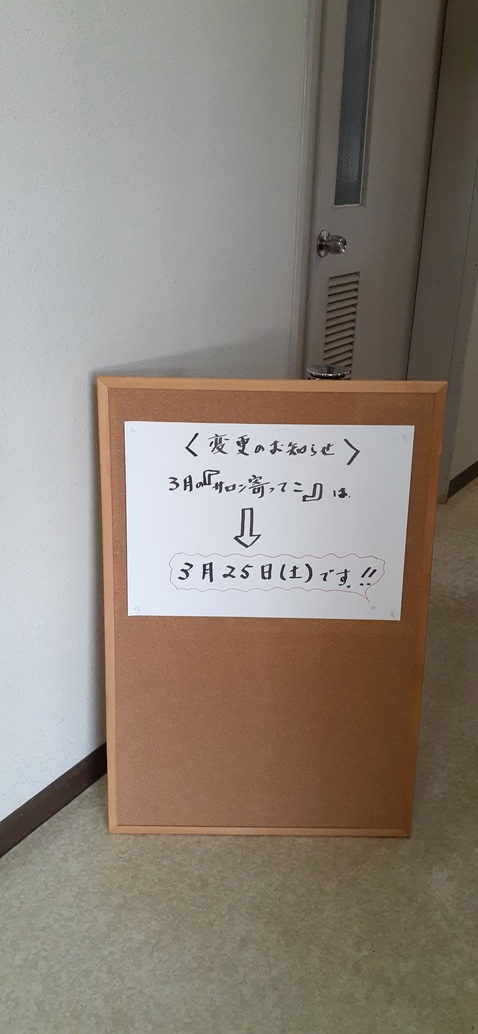 〈変更のお知らせ〉
3月の『サロン寄ってこ』は
3月25日(土)です。!!